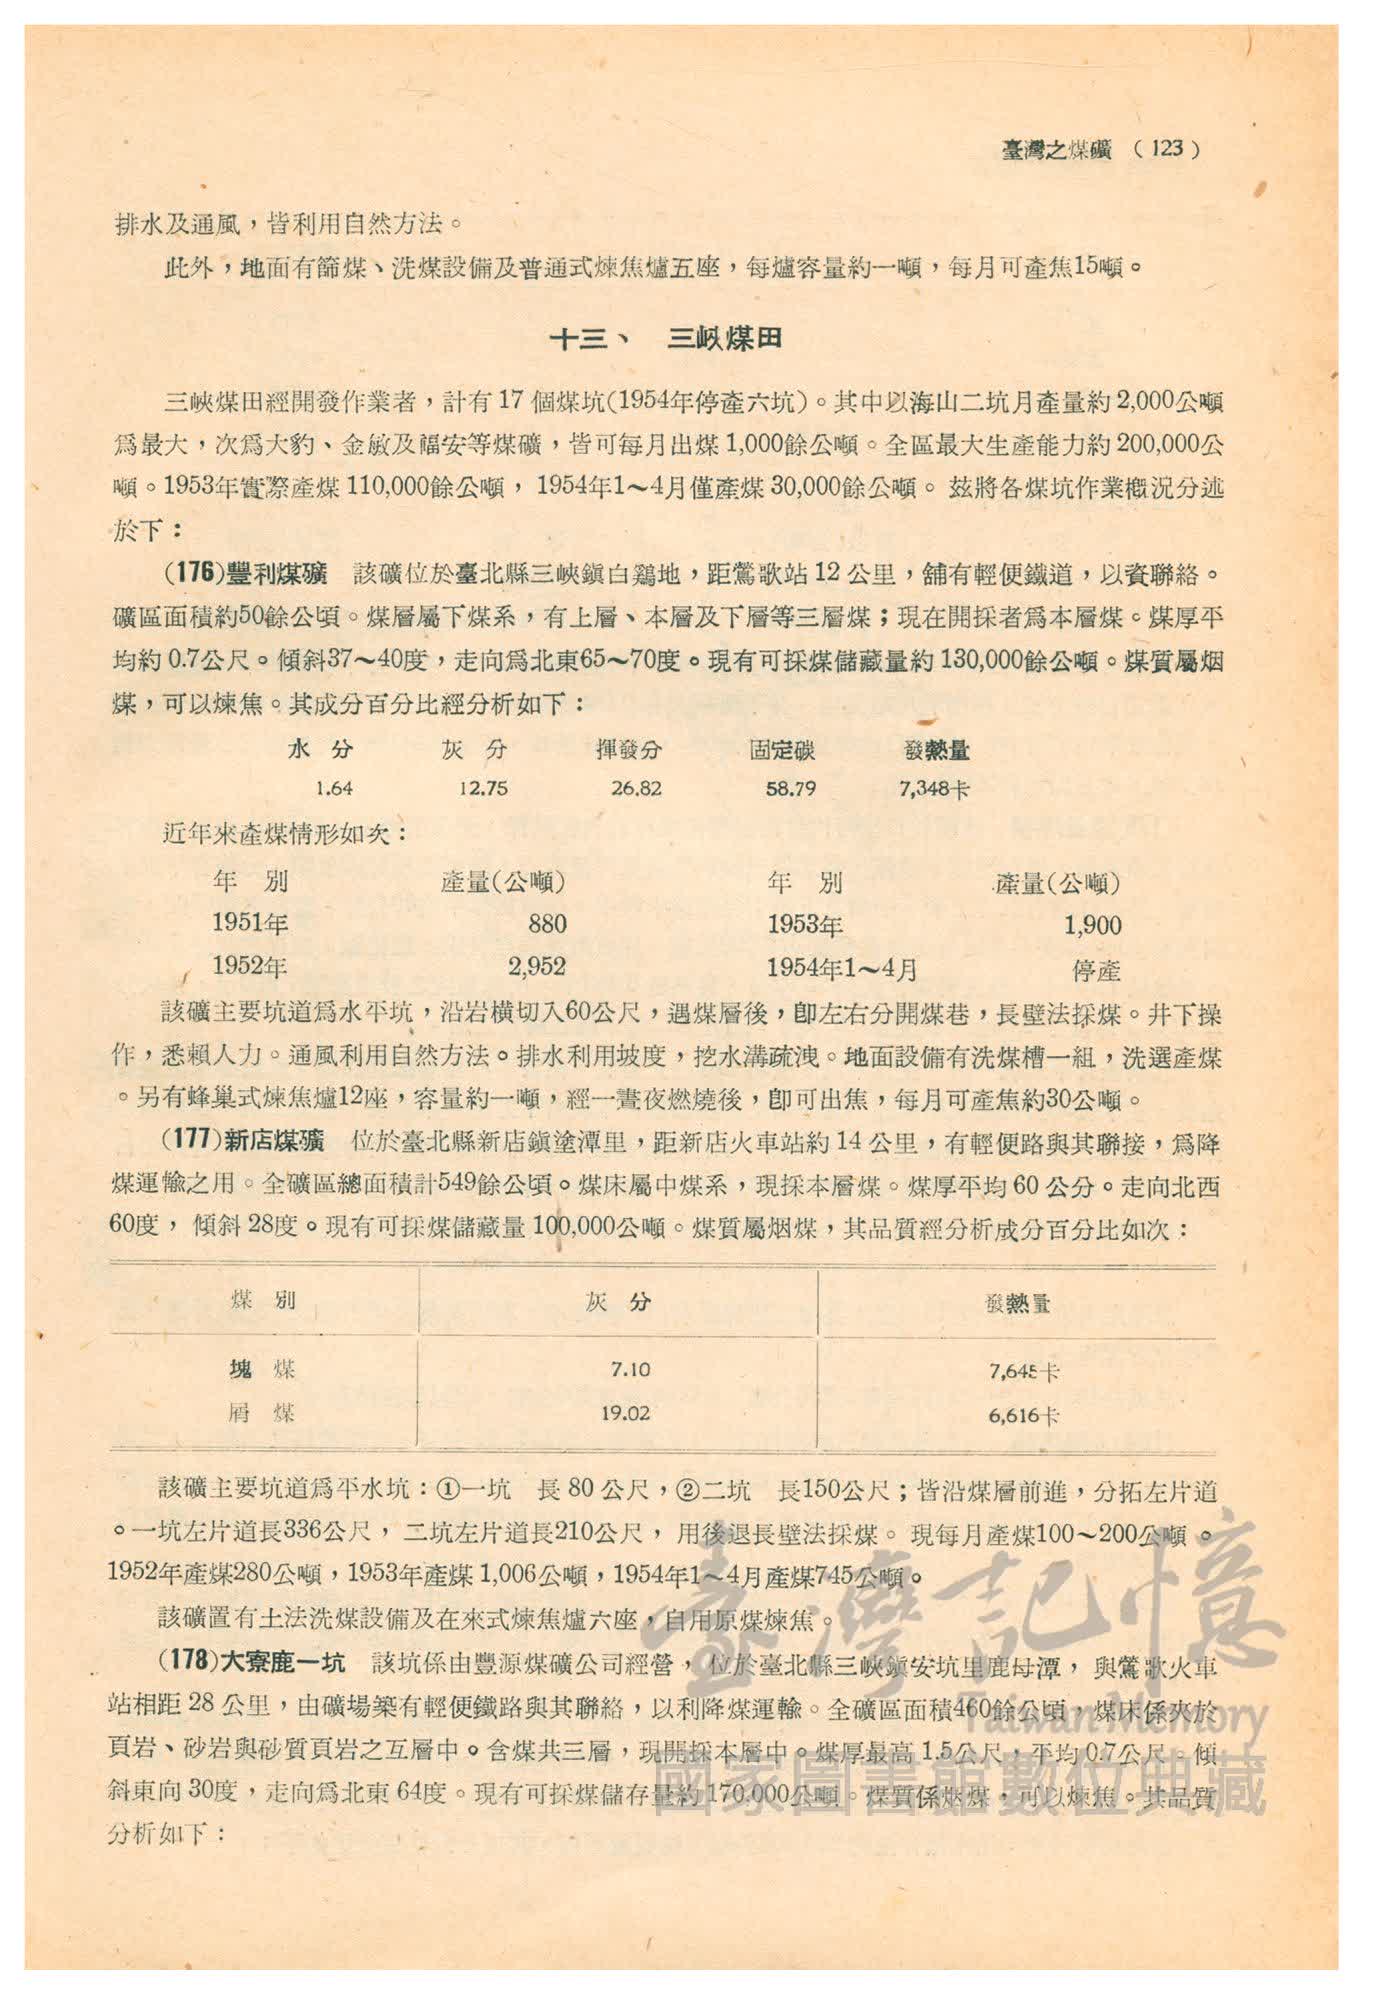 臺灣之煤礦 (123)
排水及通風，皆利用自然方法。
此外，地面有篩煤、洗煤設備及普通式煉焦爐五座，每爐容量約一噸，每月可產焦15噸。
十三、 三峽煤田
三峽煤田經開發作業者，計有17個煤坑(1954年停產六坑)。其中以海山二坑月產量約2,000公噸
爲最大，次爲大豹、金敏及福安等煤礦，皆可每月出煤1,000餘公噸。全區最大生產能力約200,000公
噸。1953年實際產煤110,000餘公噸，1954年1～4月僅產煤30,000餘公噸。玆將各煤坑作業槪況分述
於下：
(176)豐利煤礦 該礦位於臺北縣三峽鎭白鷄地，距鶯歌站12公里，舖有輕便鐵道，以資聯絡。
礦區面積約50餘公頃。煤層屬下煤系，有上層、本層及下層等三層煤；現在開採者爲本層煤。煤厚平
均約0.7公尺。傾斜37～40度，走向爲北東65～70度。現有可採煤儲藏量約130,000餘公噸。煤質屬烟
煤，可以煉焦。其成分百分比經分析如下：
水 分 灰 分 揮發分 固定碳 發熱量
1.64 12.75 26.82 58.79 7,348卡
近年來產煤情形如次：
年 別 產量(公噸) 年 別 產量(公噸)
1951年 880 1953年 1,900
1952年 2,952 1954年1～4月 停產
該礦主要坑道爲水平坑，沿岩橫切入60公尺，遇煤層後，卽左右分開煤巷，長壁法採煤。井下操
作，悉賴人力。通風利用自然方法。排水利用坡度，挖水溝疏洩。地面設備有洗煤槽一組，洗選產煤
。另有蜂巢式煉焦爐12座，容量約一噸，經一晝夜燃燒後，卽可出焦，每月可產焦約30公噸。
(177)新店煤礦 位於臺北縣新店鎭塗潭里，距新店火車站約14公里，有輕便路與其聯接，爲降
煤運輸之用。全礦區總面積計549餘公頃。煤床屬中煤系，現採本層煤。煤厚平均60公分。走向北西
60度，傾斜28度。現有可採煤儲藏量100,000公噸。煤質屬烟煤，其品質經分析成分百分比如次：
煤 別 灰 分 發熱量
塊 煤 7.10 7,645卡
屑 煤 19.02 6,616卡
該礦主要坑道爲平水坑：①一坑 長80公尺，②二坑 長150公尺；皆沿煤層前進，分拓左片道
。一坑左片道長336公尺，二坑左片道長210公尺，用後退長壁法採煤。現每月產煤100～200公噸。
1952年產煤280公噸，1953年產煤1,006公噸，1954年1～4月產煤745公噸。
該礦置有土法洗煤設備及在來式煉焦爐六座，自用原煤煉焦。
(178)大寮鹿一坑 該坑係由豐源煤礦公司經營，位於臺北縣三峽鎭安坑里鹿母潭，與鶯歌火車
站相距28公里，由礦場築有輕便鐵路與其聯絡，以利降煤運輸。全礦區面積460餘公頃，煤床係夾於
頁岩、砂岩與砂質頁岩之互層中。含煤共三層，現開採本層中。煤厚最高1.5公尺，平均0.7公尺。傾
斜東向30度，走向爲北東64度。現有可採煤儲存量約170,000公噸。煤質係烟煤，可以煉焦。其品質
分析如下：
臺灣記憶
Taiwan Memory
國家圖書館數位典藏